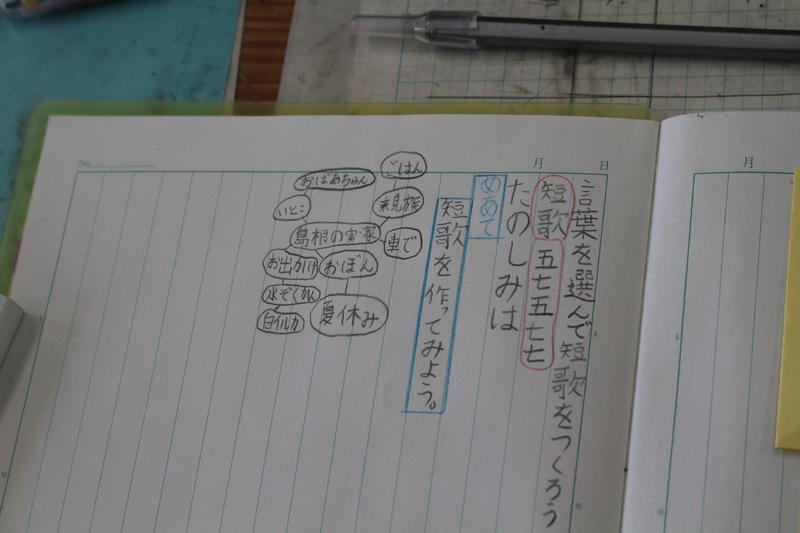 言葉を選んで短歌をつくろう
短歌 五七五七七
たのしみは
めあて
短歌を作ってみよう。
ごはん
親族
車で
おばあちゃん
いとこ
島根の実家
お出かけ
おぼん
水ぞくかん
白イルカ
夏休み
No.
月
日
月
5
5
10
10
10